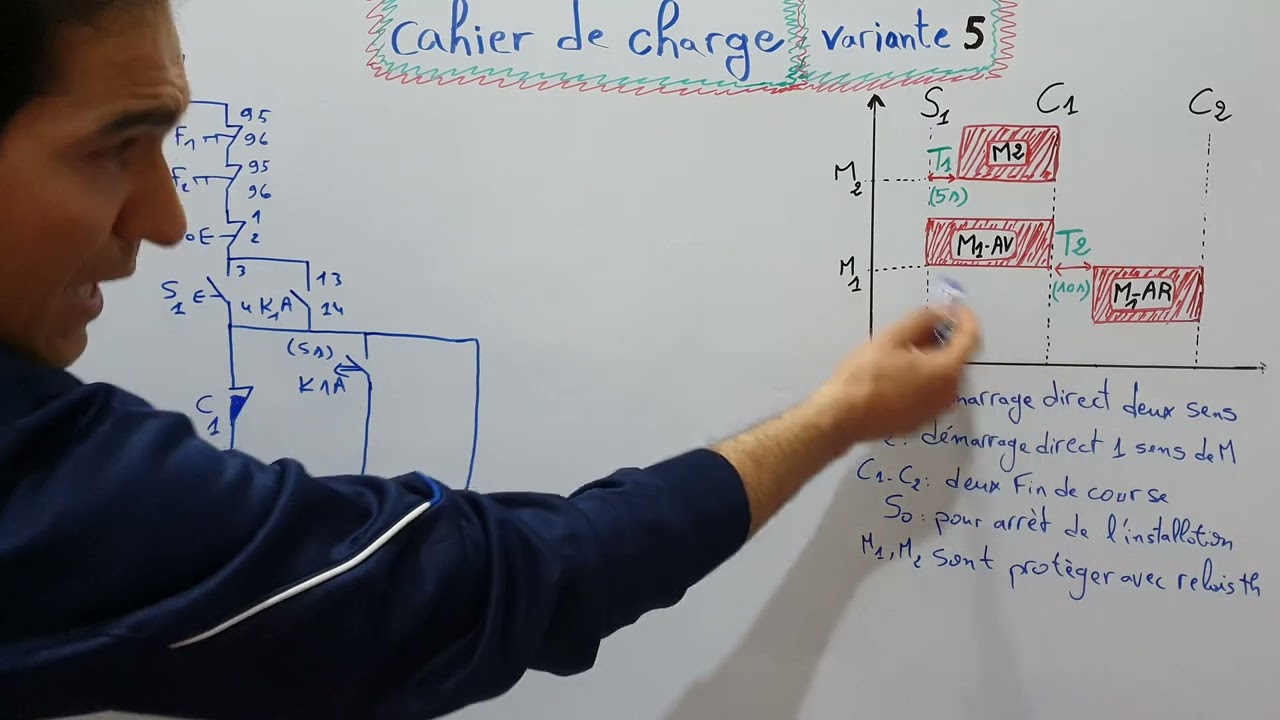 Cahier de charge variante 5
95
F1 96
95
F2 96
1
2
3
13
S1 4 K1A 14
(5s)
K1A
C1
S1 C1 C2
M2
T1
M2
(5s)
M1-AV T2
M1
(10s) M1-AR
marrage direct deux sens
2: démarrage direct 1 sens de M
C1-C2: deux Fin de course
S0: pour arrèt de l'installation
M1, M2 sont protèger avec relais th